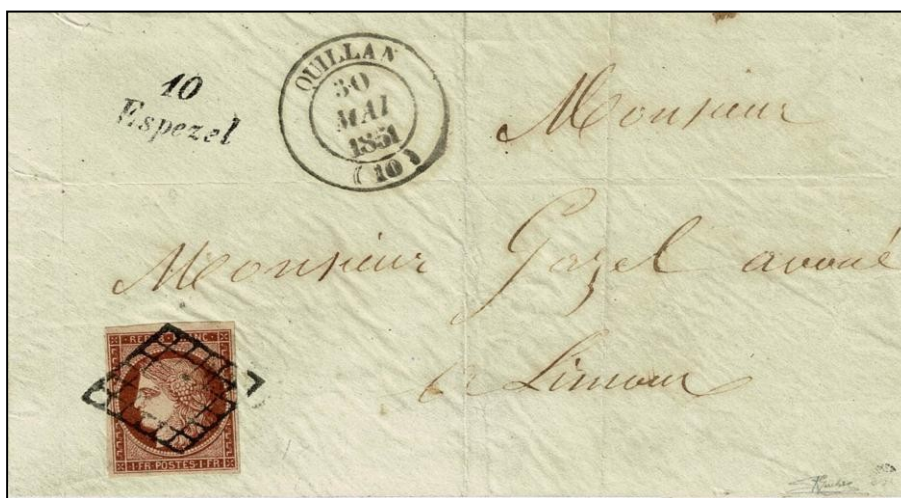 10
Espezel
QUILLAN
30
MAI
1851
(10)
Monsieur
Monsieur Gazel avoué
a Limoux
REPUB. FRANC.
1·FR·POSTES·1·FR